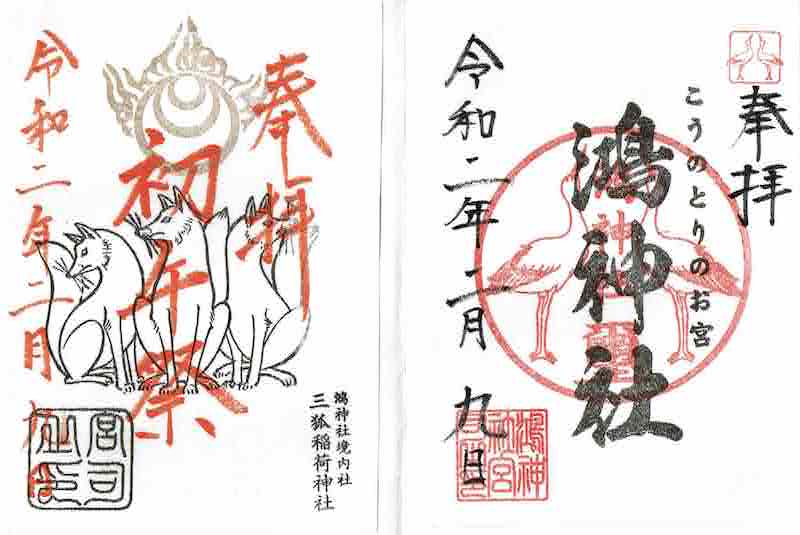 奉拝
こうのとりのお宮
鴻神社
令和二年二月九日
奉拝
初午祭
令和二年二月九日
鴻神社境内社
三狐稲荷神社
宮司
之印